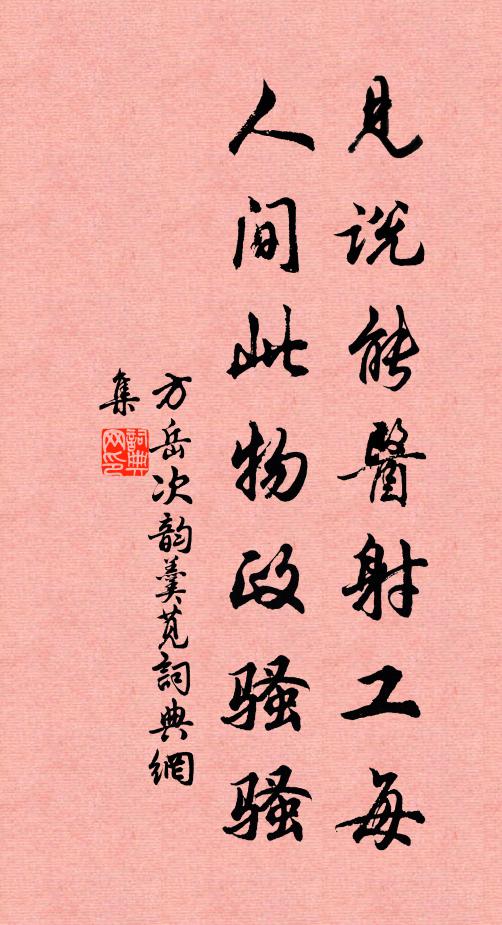 见说能医射工每
人间此物政骚骚
方岳次韵羹苋词典網
集
詞典
网印